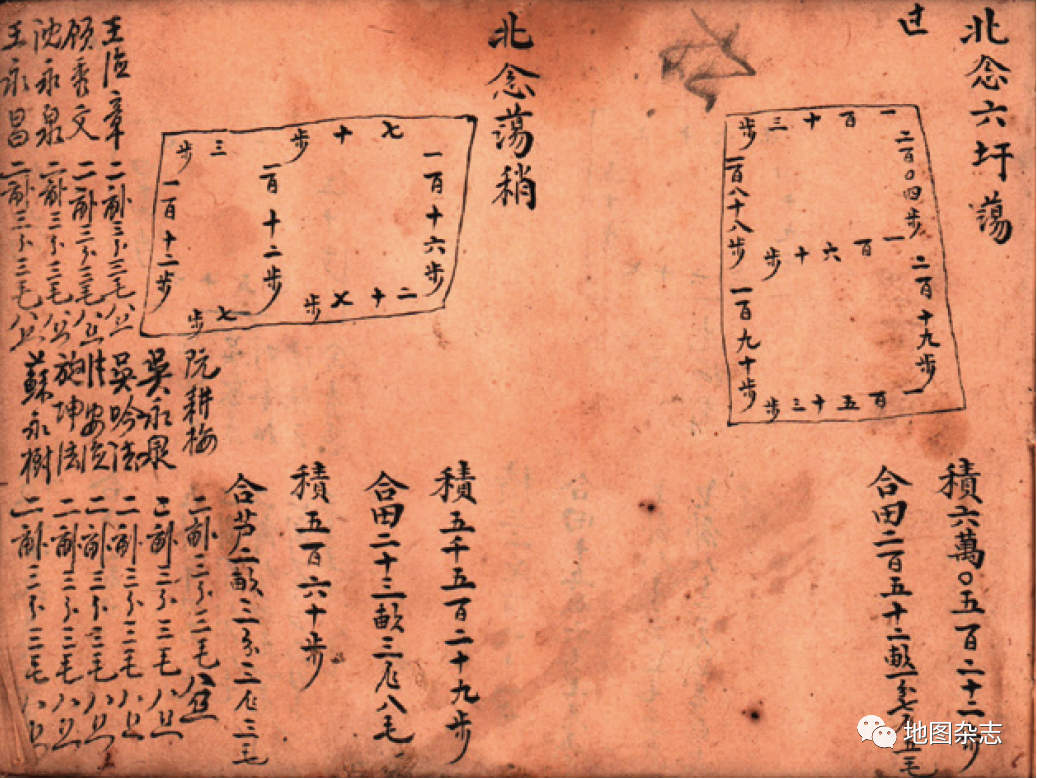 北念六圩蕩
一百十三步
二百〇四步
二百十九步
一百六十步
一百八十八步
一百九十步
一百五十三步
積六萬〇五百二十二步
合田二百五十二畝一分七厘五毛
北念蕩稍
七十步
三步
一百十六步
一百十二步
一百十二步
二十七步
七步
積五千五百二十九步
合田二十三畝三厘八毛
積五百六十步
合芦二畝三分三厘三毛
阮耕梅 二畝三分三毛八丝
吳永泉 二畝三分三毛八丝
吳吟 二畝三分三毛八丝
安 二畝三分三毛八丝
施坤法 二畝三分三毛八丝
蘇永樹 二畝三分三毛八丝
王 章 二畝三分三毛八丝
顾秀文 二畝三分三毛八丝
沈永泉 二畝三分三毛八丝
王永昌 二畝三分三毛八丝
地图杂志